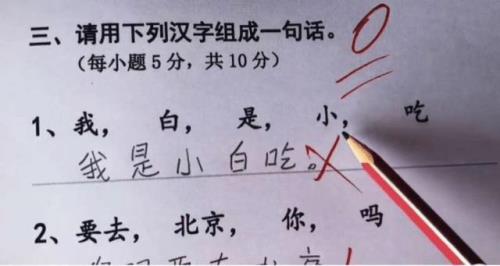 三、请用下列汉字组成一句话。 0
（每小题5分，共10分）
1、我， 白， 是， 小， 吃
我是小白吃。
2、要去， 北京， 你， 吗